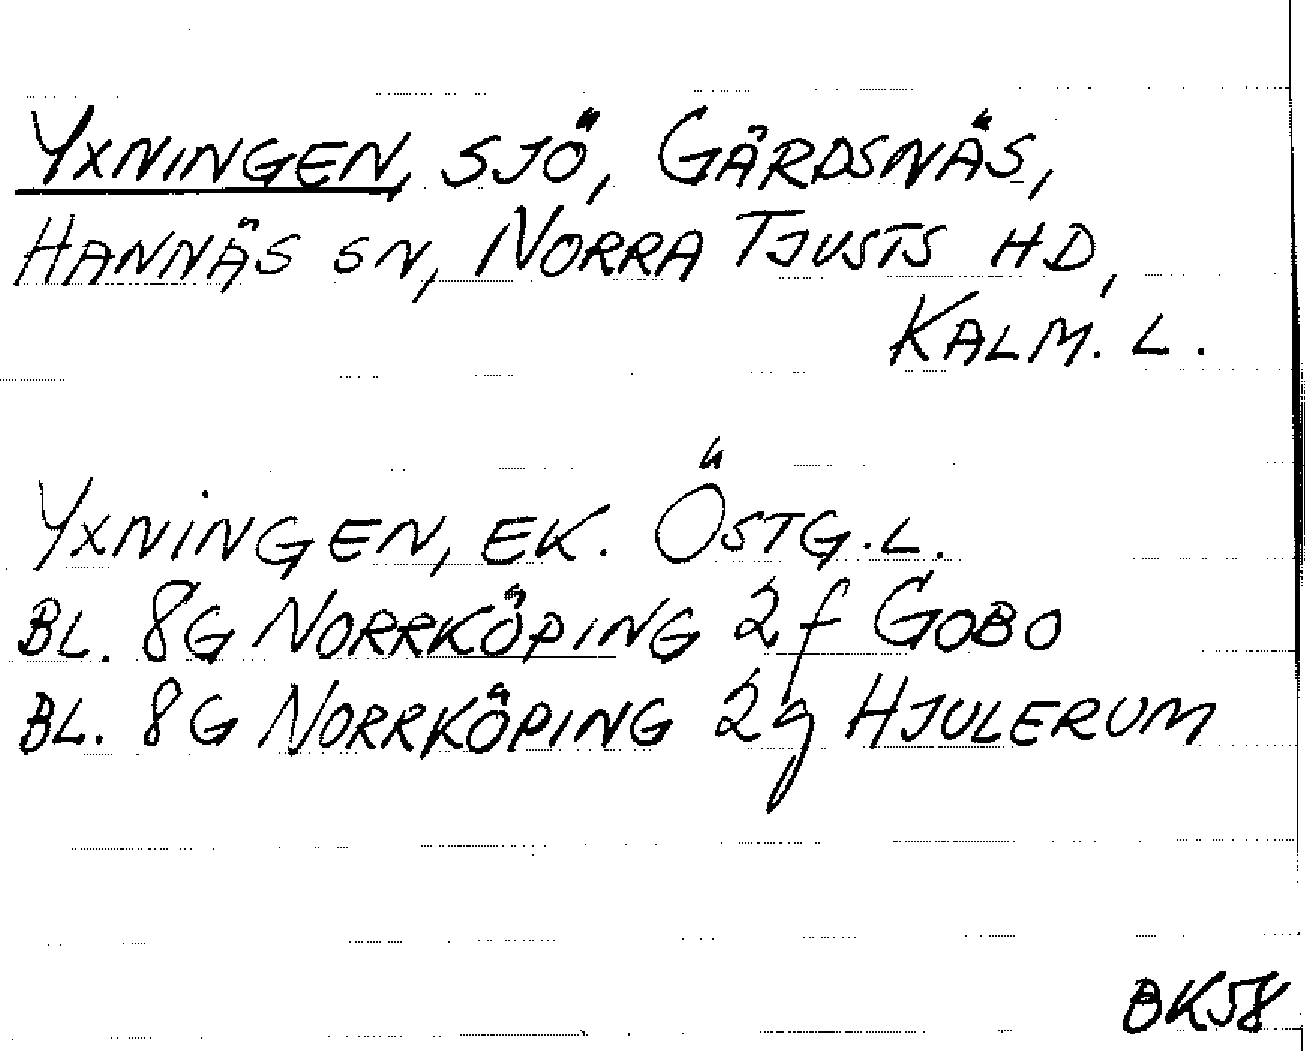 YXNINGEN, SJÖ, GÄRDSNÄS,
HANNÄS SN, NORRA TJUSTS HD,
KALM. L.
YXNINGEN, EK. ÖSTG.L.
BL. 8G NORRKÖPING 2f GOBO
BL. 8G NORRKÖPING 2g HJULERUM
BK58